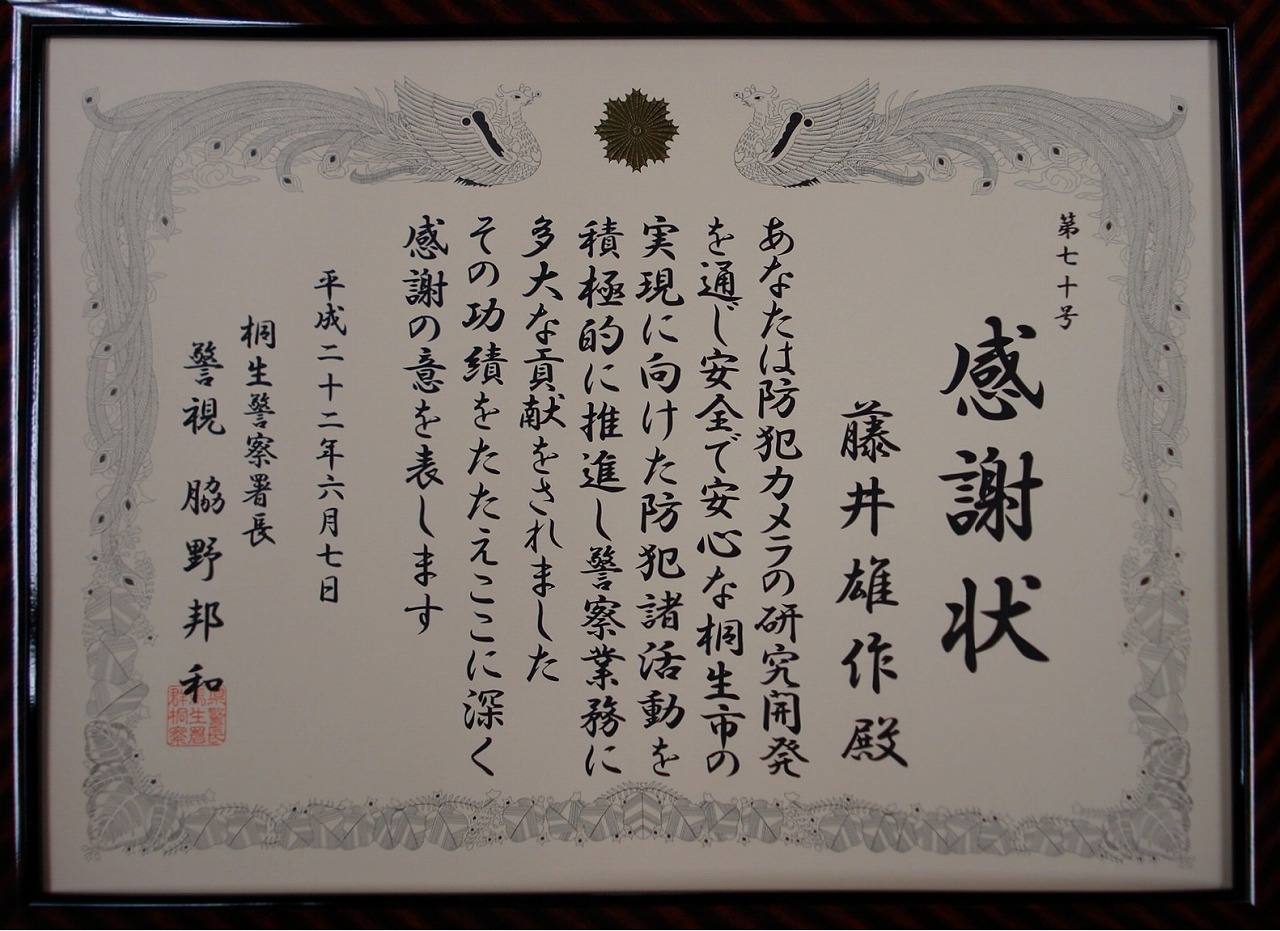 第七十号
感謝状
藤井雄作殿
あなたは防犯カメラの研究開発
を通じ安全で安心な桐生市の
実現に向けた防犯諸活動を
積極的に推進し警察業務に
多大な貢献をされました
その功績をたたえここに深く
感謝の意を表します
平成二十二年六月七日
桐生警察署長
警視 脇野邦和